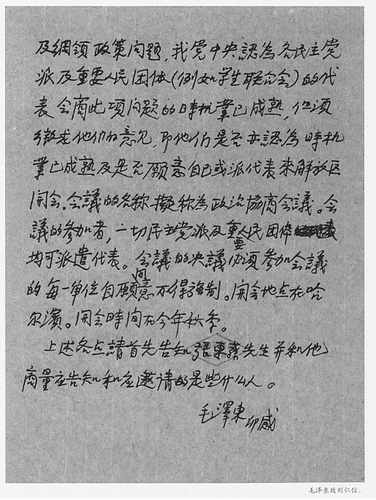 及綱領政策问题,我党中央認為各民主党
派及重要人民团体(例如学生联合会)的代
表会商此项问题的時机業已成熟,但须
徵求他们的意见,即他们是否亦認為時机
業已成熟及是否願意自己或派代表来解放区
開会。会議的名称擬称為政治協商会議。会
議的参加者,一切民主党派及重要人民团体
均可派遣代表。会議的决議必须参加会議
的每一单位自願同意不得强制。開会地点在哈
尔濱。開会時间在今年秋季。
上述各点請首先告知張東蓀先生並和他
商量应告知和应邀请的是些什么人。
毛澤東 卯感
毛泽东致刘仁信。